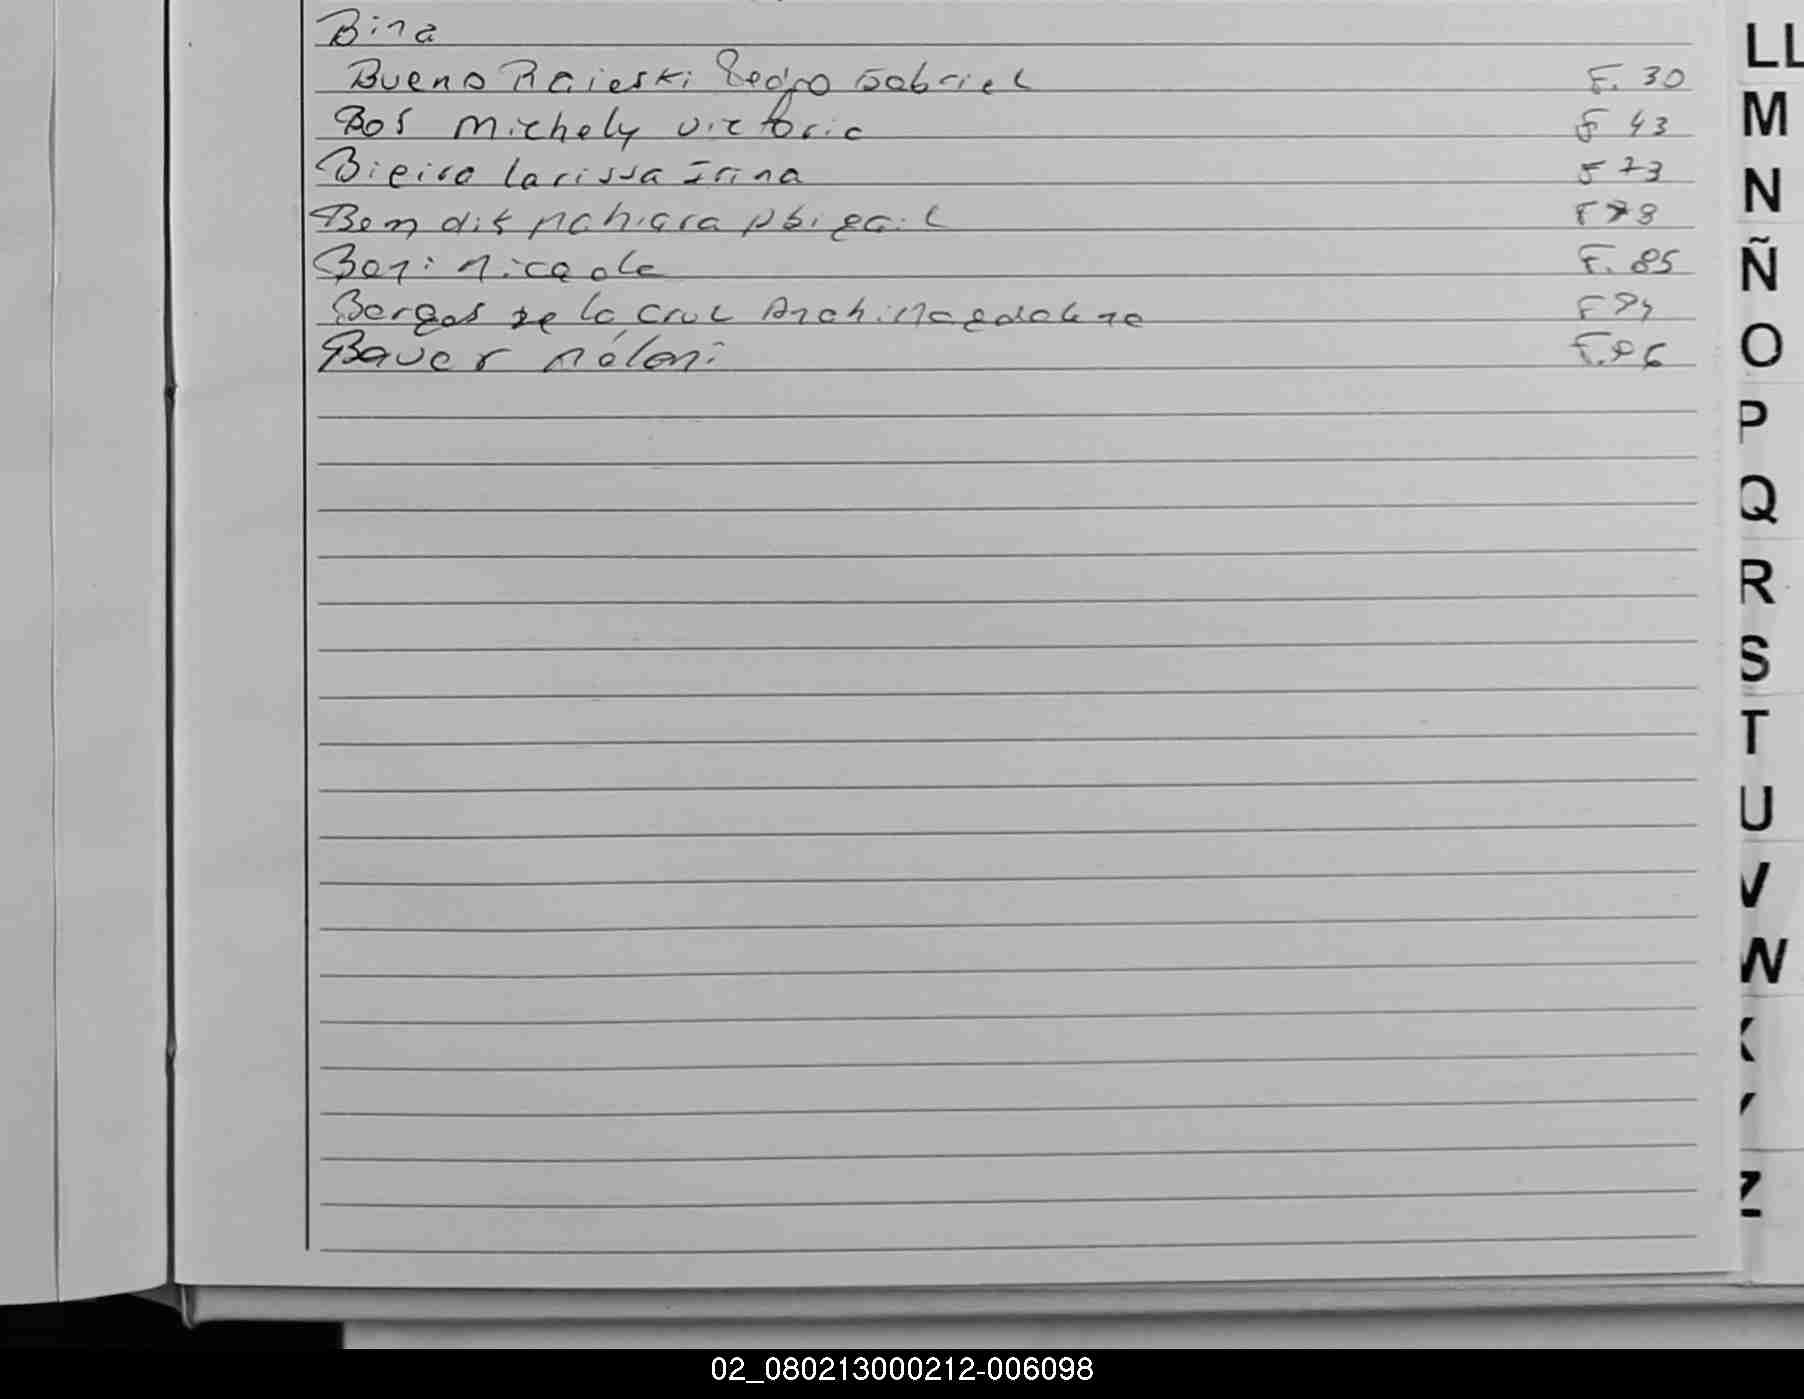 Bina
Bueno Raieski Pedro Gabriel F. 30
Bos Michely Victoria F 43
Bieira Larissa Irina F 73
Ben dit Nahiara Abigail F 78
Boni Nicaole F. 85
Borges de la Cruz Anahi Magdalena F 94
Bauer Mélani F. 96
LL
M
N
Ñ
O
P
Q
R
S
T
U
V
W
X
Y
Z
02_080213000212-006098